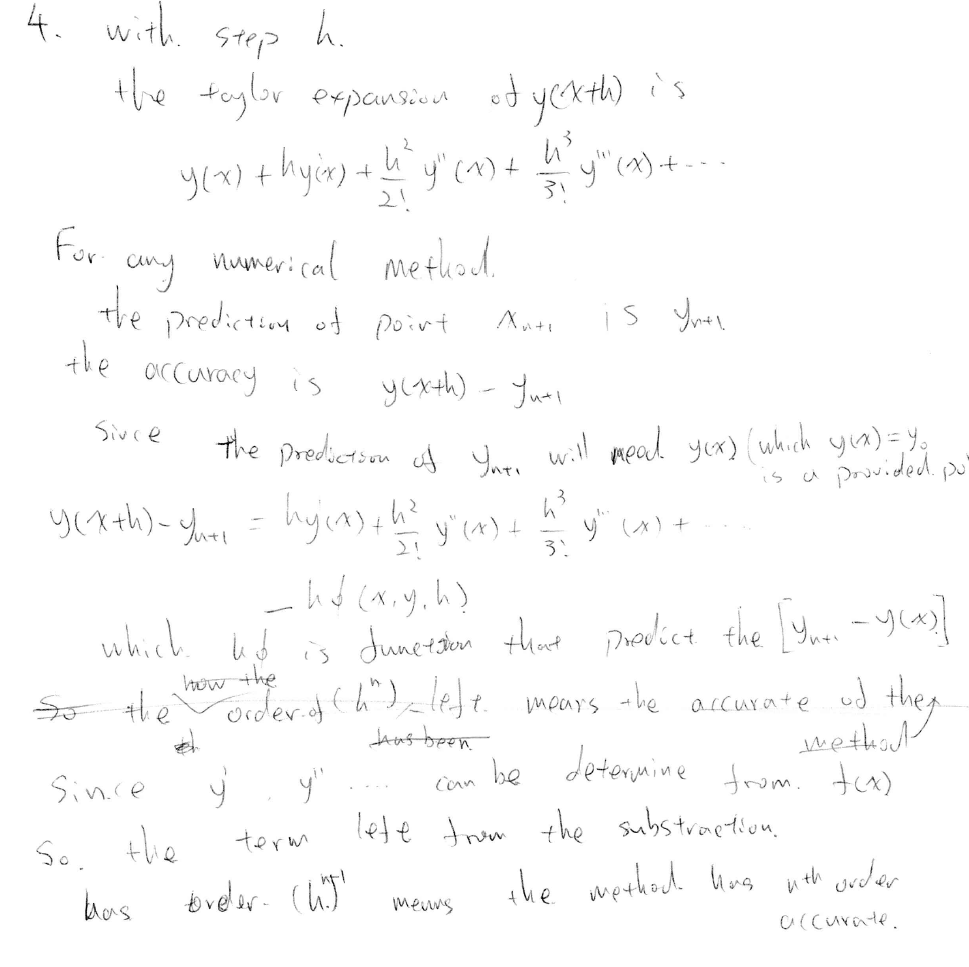 4. with. step h.
the taylor expansion of y(x+h) is
y(x) + hy'(x) + h²/2! y''(x) + h³/3! y'''(x) + ...
For any numerical method.
the prediction of point xₙ₊₁ is yₙ₊₁
the accuracy is y(x+h) - yₙ₊₁
Since the prediction of yₙ₊₁ will need y(x) (which y(x) = y₀
is a provided po
y(x+h) - yₙ₊₁ = hy'(x) + h²/2! y''(x) + h³/3! y'''(x) + ....
- hϕ(x,y,h)
which hϕ is function that predict the [yₙ₊₁ - y(x)]
how the
So the order of (hⁿ) left means the accurate of the
has been method
Since y', y'' .... can be determine from. f(x)
So. the term left from the substraction.
has order (hⁿ⁺¹) means the method has nth order
accurate.